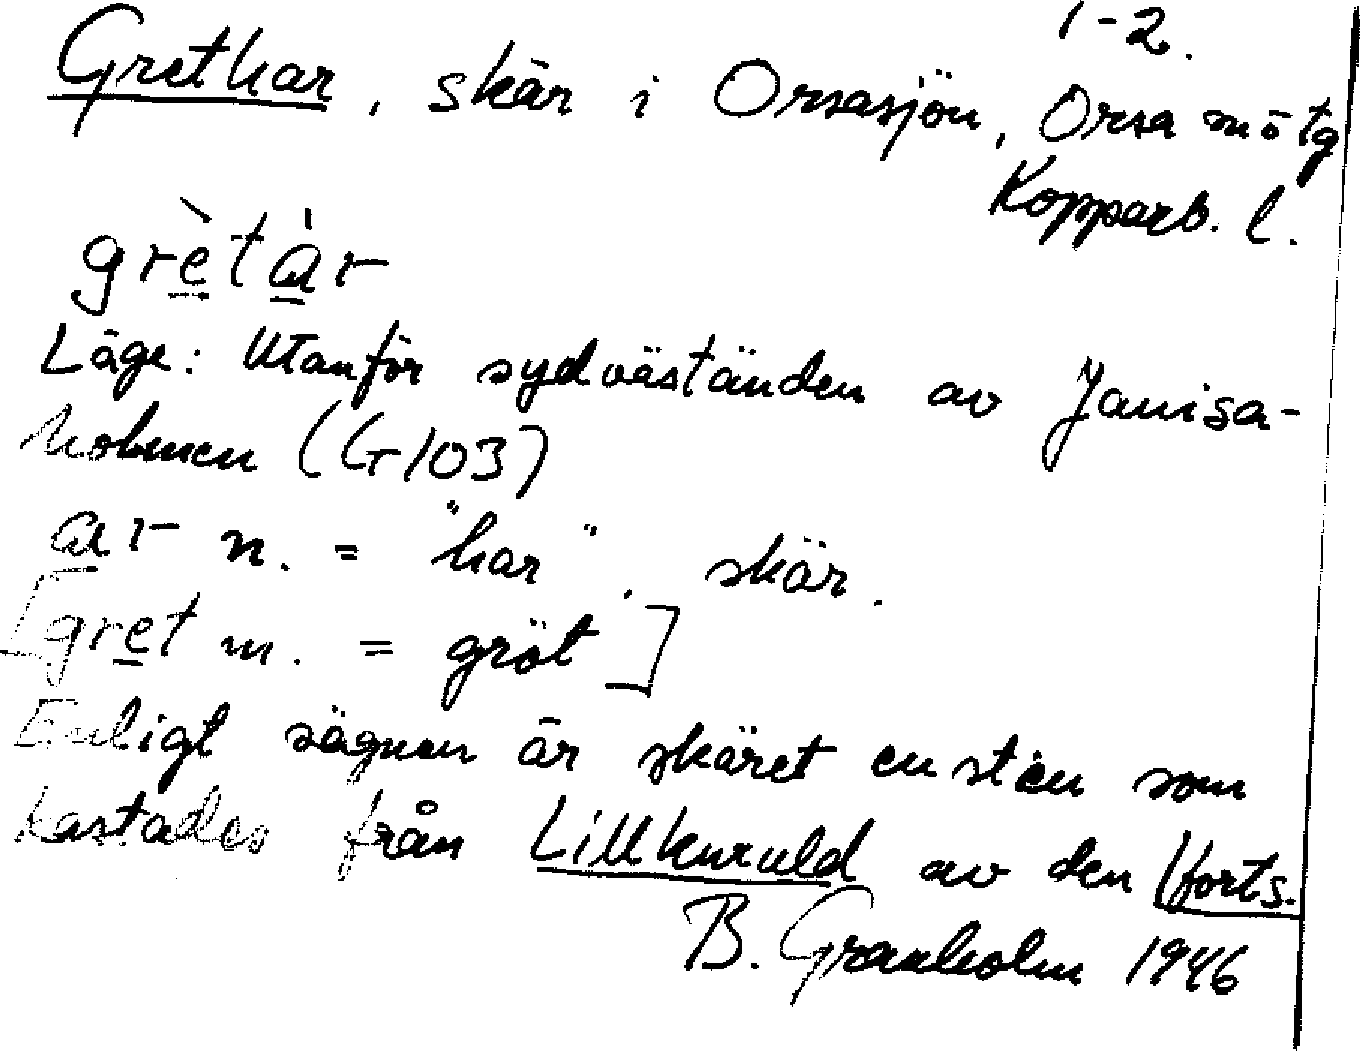 1-2.
Grethar, skär i Orsasjön, Orsa mötg
Kopparb. l.
grètàr
Läge: Utanför sydväständen av Janisa-
holmen (G103)
ar n. = "har", skär.
[gret m. = gröt]
Enligt sägnen är skäret en sten som
kastades från Lillkuruld av den forts.
B. Granholm 1946